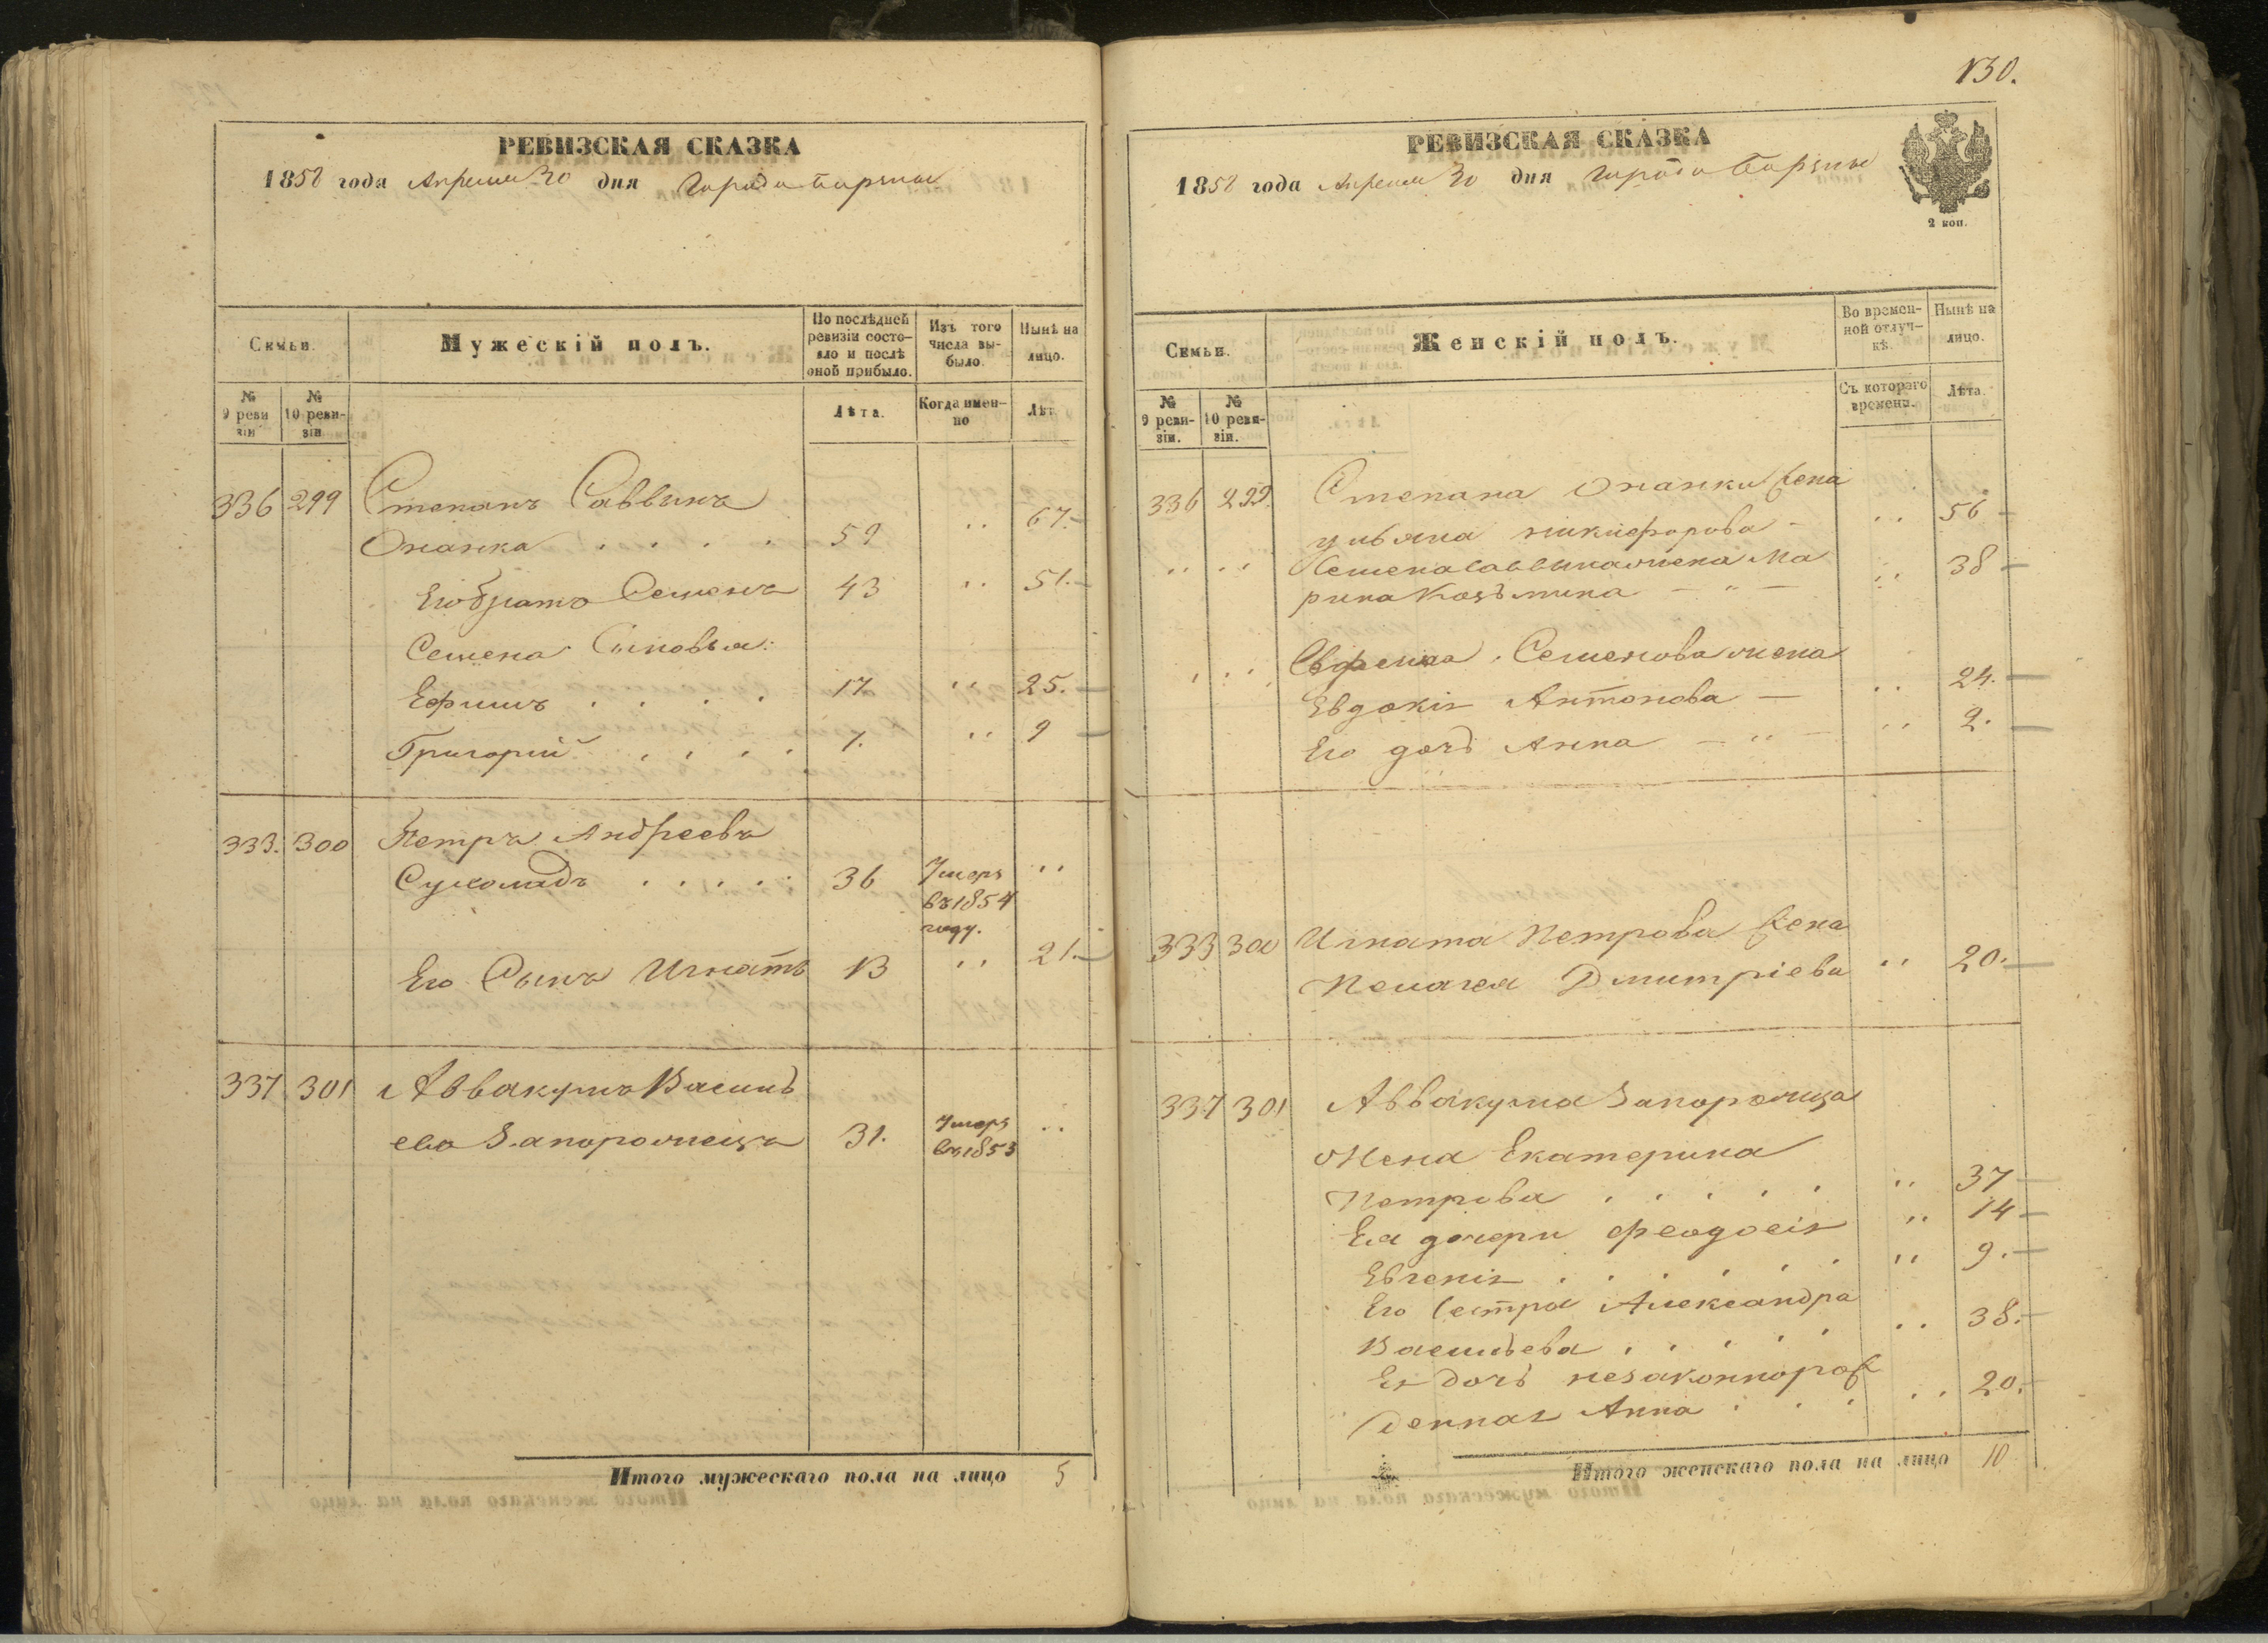 РЕВИЗСКАЯ СКАЗКА
1858 года Апреля 30 дня Города Борзны
Семьи.
Мужескій полъ.
По послѣдней ревизіи состояло и послѣ оной прибыло.
Изъ того числа выбыло.
Нынѣ на лицо.
№ 9 ревизіи
№ 10 ревизіи
Лѣта.
Когда именно
Лѣт
336 299 Степанъ Саввинъ
59 67.
Его братъ Семенъ 43 51.
Семена Сыновья:
Ефимъ 17 25.
Григорій 1. 9
333. 300 Петръ Андреевъ
36 Умеръ
въ 1854
году.
Его Сынъ Игнатъ 13 21.
337 301 Аввакумъ Василь
евъ Запорожецъ 31. Умеръ
въ 1853
Итого мужескаго пола на лицо 5
130.
РЕВИЗСКАЯ СКАЗКА
1858 года Апреля 30 дня города Борзны
2 коп.
Семьи.
Женскій полъ.
Во временной отлучкѣ.
Нынѣ на лицо.
№ 9 ревизіи.
№ 10 ревизіи.
Съ котораго времени.
Лѣта.
336 299. Степана жена
ульяна никифорова 56
Семена Саввина жена Ма
рина Козьмина 38
Ефима Семенова жена
Евдокія Антонова 24.
Его дочь Анна 2.
333 300 Игната Петрова жена
Пелагея Дмитріева 20.
337 301 Аввакума Запорожца
жена Екатерина
Петрова 37
Ея дочери Феодосія 14
Евгенія 9.
Его Сестра Александра
Васильева 38.
Ея дочь незаконнорож
денная Анна 20.
Итого женскаго пола на лицо 10